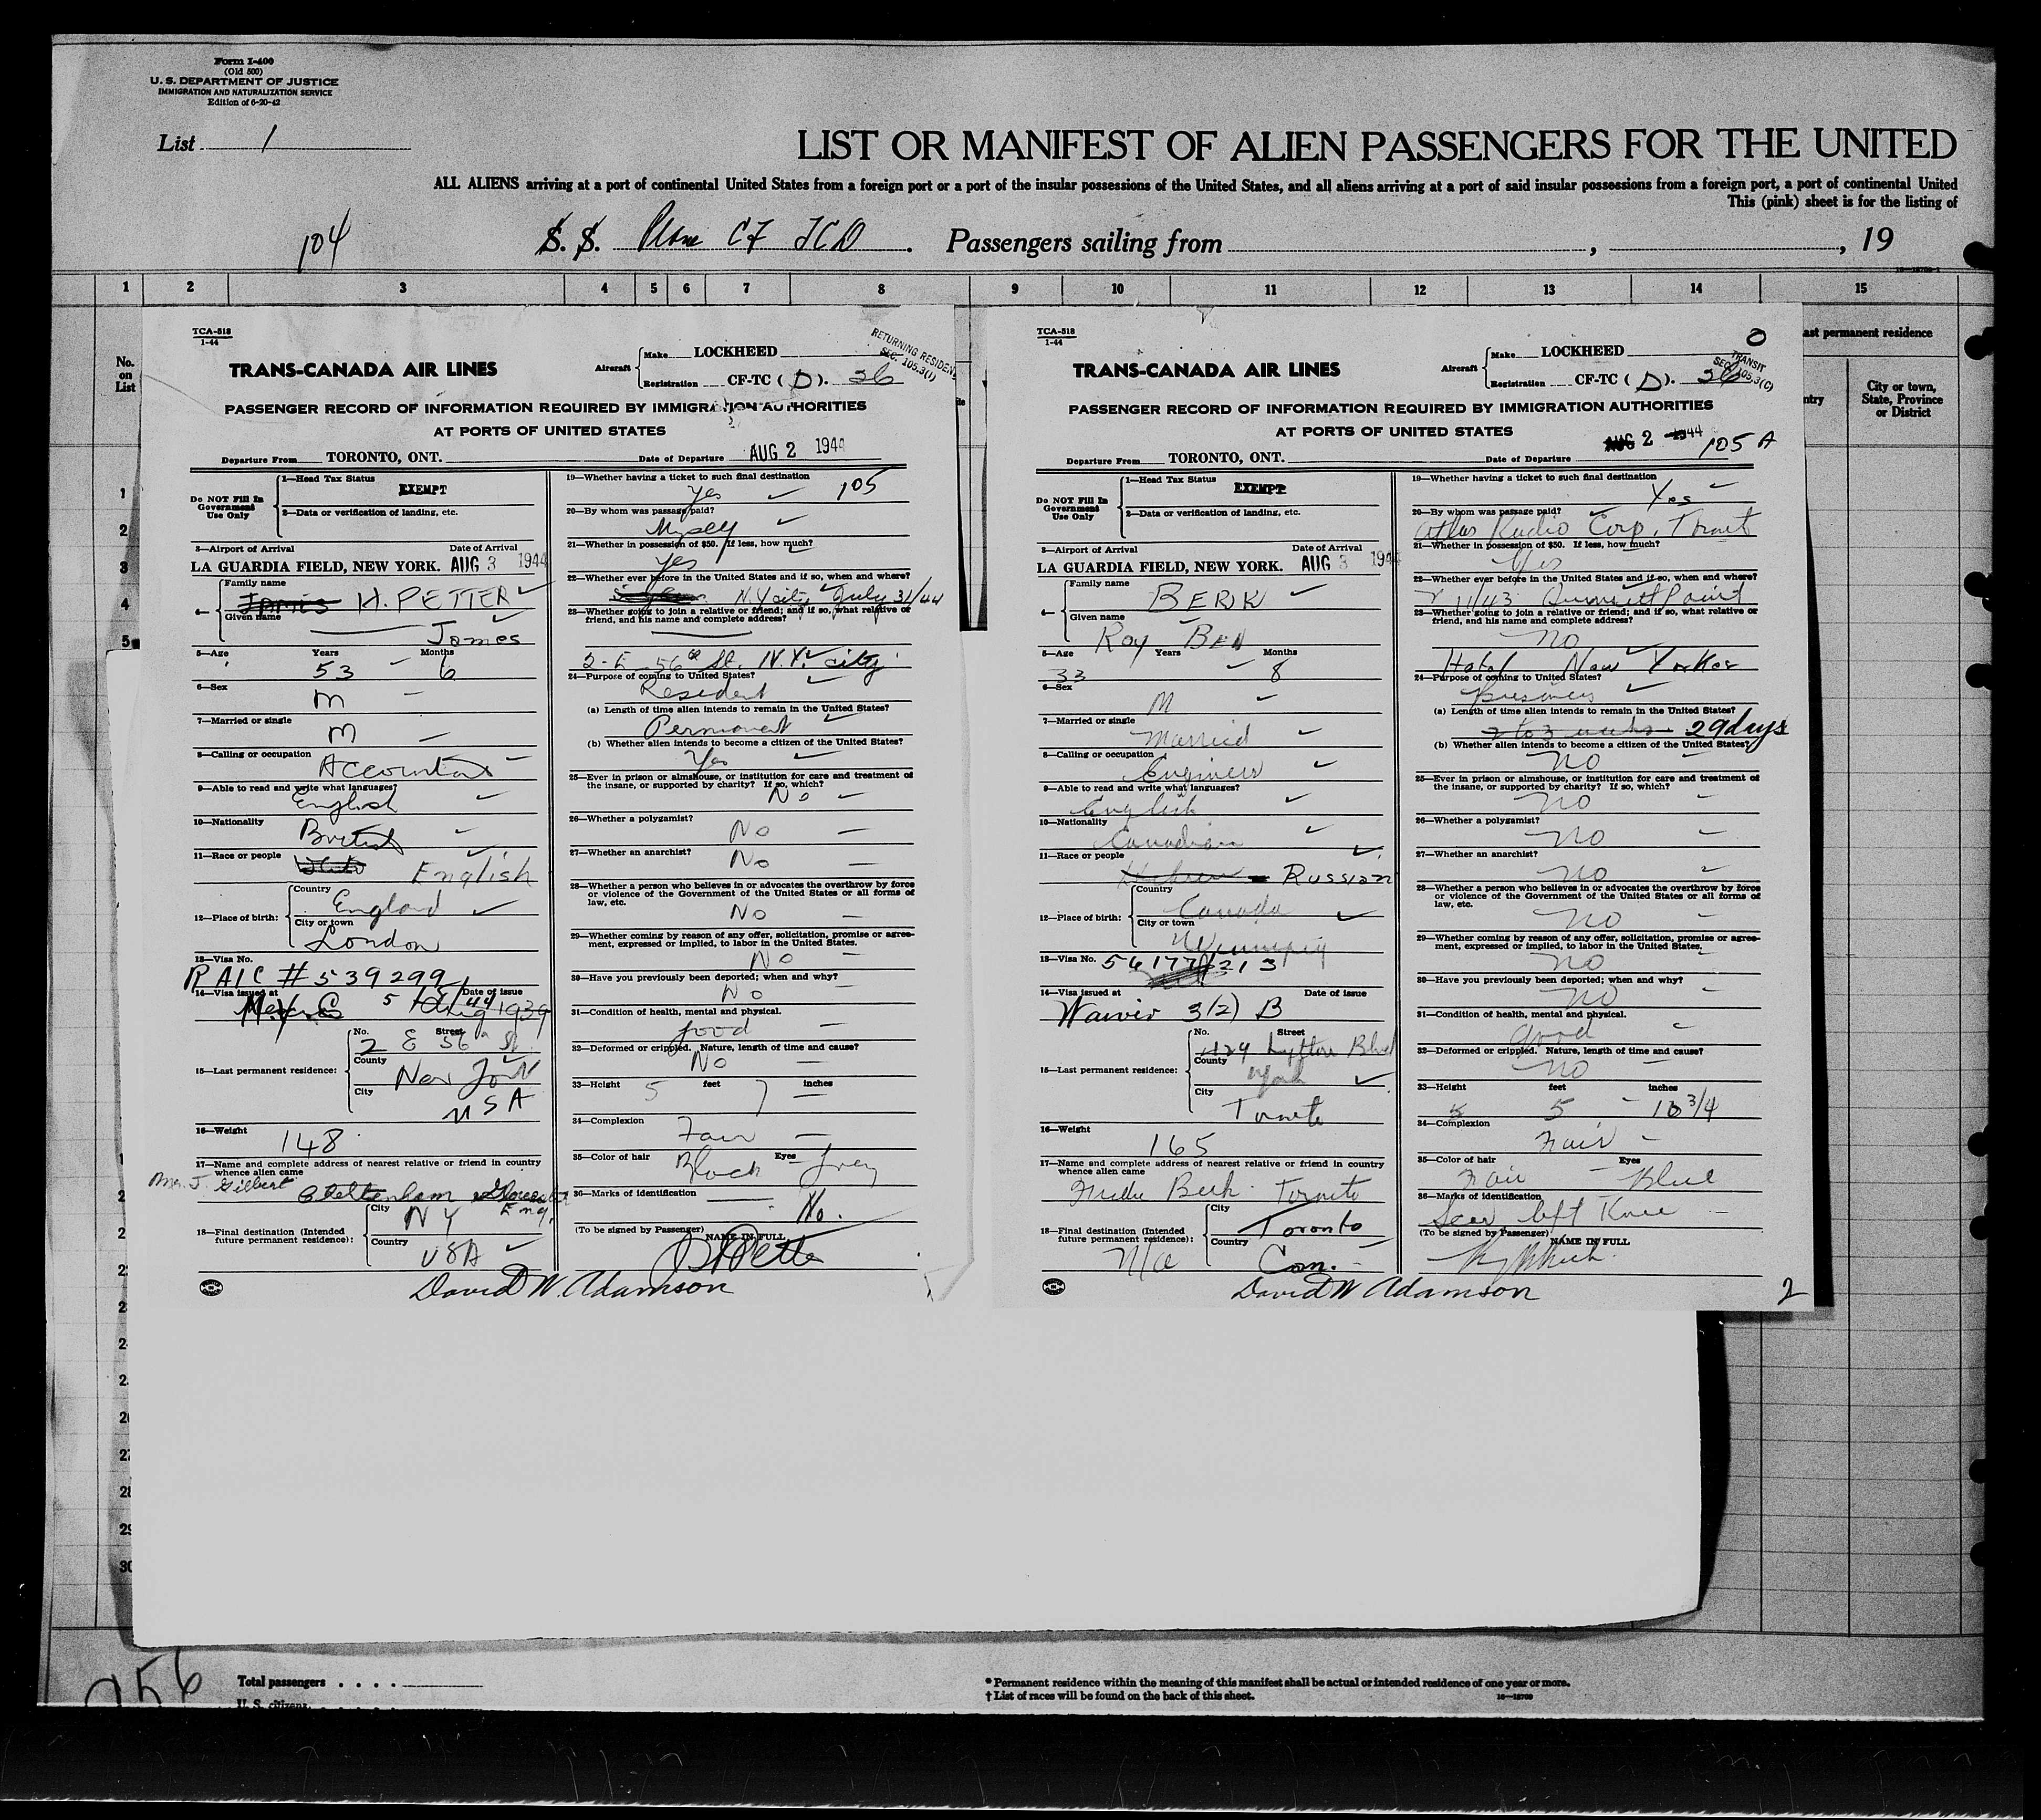 Form I-400
(Old 500)
U. S. DEPARTMENT OF JUSTICE
IMMIGRATION AND NATURALIZATION SERVICE
Edition of 6-20-42
List 1
LIST OR MANIFEST OF ALIEN PASSENGERS FOR THE UNITED
ALL ALIENS arriving at a port of continental United States from a foreign port or a port of the insular possessions of the United States, and all aliens arriving at a port of said insular possessions from a foreign port, a port of continental United
This (pink) sheet is for the listing of
104
S. S. Plane CF TCD . Passengers sailing from , , 19
1 2 3 4 5 6 7 8 9 10 11 12 13 14 15
No.
on
List
TCA-518
1-44
TRANS-CANADA AIR LINES
Aircraft
Make LOCKHEED
Registration CF-TC ( D ). 36
RETURNING RESIDENT
SEC. 105.3(1)
PASSENGER RECORD OF INFORMATION REQUIRED BY IMMIGRATION AUTHORITIES
AT PORTS OF UNITED STATES
Departure From TORONTO, ONT. Date of Departure AUG 2 1944
Do NOT Fill In
Government
Use Only
1—Head Tax Status
EXEMPT
2—Data or verification of landing, etc.
3—Airport of Arrival Date of Arrival
LA GUARDIA FIELD, NEW YORK. AUG 3 1944
4— Family name
James H. PETTER
Given name
James
5—Age Years Months
53 6
6—Sex
M
7—Married or single
M
8—Calling or occupation
Accountant
9—Able to read and write what languages?
English
10—Nationality
British
11—Race or people
White English
12—Place of birth:
Country
England
City or town
London
13—Visa No.
RAIC # 539299
14—Visa issued at Date of issue
5 Aug 1939
15—Last permanent residence:
No. Street
2 E 56th St.
County
New York
City
USA
16—Weight
148
17—Name and complete address of nearest relative or friend in country
whence alien came
Mrs. J. Gilbert Cheltenham Gloucester
Eng.
18—Final destination (Intended
future permanent residence):
City
NY
Country
USA
19—Whether having a ticket to such final destination
Yes 105
20—By whom was passage paid?
Myself
21—Whether in possession of $50. If less, how much?
Yes
22—Whether ever before in the United States and if so, when and where?
N.Y. city July 31/44
23—Whether going to join a relative or friend; and if so, what relative or
friend, and his name and complete address?
2-E-56th St. N.Y. city
24—Purpose of coming to United States?
Resident
(a) Length of time alien intends to remain in the United States?
Permanent
(b) Whether alien intends to become a citizen of the United States?
Yes
25—Ever in prison or almshouse, or institution for care and treatment of
the insane, or supported by charity? If so, which?
No
26—Whether a polygamist?
No
27—Whether an anarchist?
No
28—Whether a person who believes in or advocates the overthrow by force
or violence of the Government of the United States or all forms of
law, etc.
No
29—Whether coming by reason of any offer, solicitation, promise or agree-
ment, expressed or implied, to labor in the United States.
No
30—Have you previously been deported; when and why?
No
31—Condition of health, mental and physical.
good
32—Deformed or crippled. Nature, length of time and cause?
No
33—Height feet inches
5 7
34—Complexion
Fair
35—Color of hair Eyes
Black Grey
36—Marks of identification
No.
(To be signed by Passenger)
NAME IN FULL
David W. Adamson
TCA-518
1-44
TRANS-CANADA AIR LINES
Aircraft
Make LOCKHEED
Registration CF-TC ( D ). 36
TRANSIT
SEC. 105.3(C)
0
PASSENGER RECORD OF INFORMATION REQUIRED BY IMMIGRATION AUTHORITIES
AT PORTS OF UNITED STATES
Departure From TORONTO, ONT. Date of Departure AUG 2 1944 105 A
Do NOT Fill In
Government
Use Only
1—Head Tax Status
EXEMPT
2—Data or verification of landing, etc.
3—Airport of Arrival Date of Arrival
LA GUARDIA FIELD, NEW YORK. AUG 3 1944
4— Family name
BERK
Given name
Roy Ben
5—Age Years Months
33 8
6—Sex
M
7—Married or single
Married
8—Calling or occupation
Engineer
9—Able to read and write what languages?
English
10—Nationality
Canadian
11—Race or people
Hebrew Russian
12—Place of birth:
Country
Canada
City or town
Winnipeg
13—Visa No.
14—Visa issued at Date of issue
Waiver 3(2) B
15—Last permanent residence:
No. Street
Lytton Blvd
County
York
City
Toronto
16—Weight
165
17—Name and complete address of nearest relative or friend in country
whence alien came
Berk Toronto
18—Final destination (Intended
future permanent residence):
City
Toronto
Country
Can.
19—Whether having a ticket to such final destination
Yes
20—By whom was passage paid?
Atlas Radio Corp. Toront
21—Whether in possession of $50. If less, how much?
Yes
22—Whether ever before in the United States and if so, when and where?
11/43
23—Whether going to join a relative or friend; and if so, what relative or
friend, and his name and complete address?
no
Hotel New Yorker
24—Purpose of coming to United States?
Business
(a) Length of time alien intends to remain in the United States?
2 to 3 weeks 29 days
(b) Whether alien intends to become a citizen of the United States?
no
25—Ever in prison or almshouse, or institution for care and treatment of
the insane, or supported by charity? If so, which?
no
26—Whether a polygamist?
no
27—Whether an anarchist?
no
28—Whether a person who believes in or advocates the overthrow by force
or violence of the Government of the United States or all forms of
law, etc.
no
29—Whether coming by reason of any offer, solicitation, promise or agree-
ment, expressed or implied, to labor in the United States.
no
30—Have you previously been deported; when and why?
no
31—Condition of health, mental and physical.
Good
32—Deformed or crippled. Nature, length of time and cause?
no
33—Height feet inches
5 10 3/4
34—Complexion
Fair
35—Color of hair Eyes
Fair Blue
36—Marks of identification
Scar left Knee
(To be signed by Passenger)
NAME IN FULL
David W Adamson
2
ast permanent residence
ntry
City or town,
State, Province
or District
1
2
3
4
5
Total passengers . . . .
U. S. citizens
* Permanent residence within the meaning of this manifest shall be actual or intended residence of one year or more.
† List of races will be found on the back of this sheet.